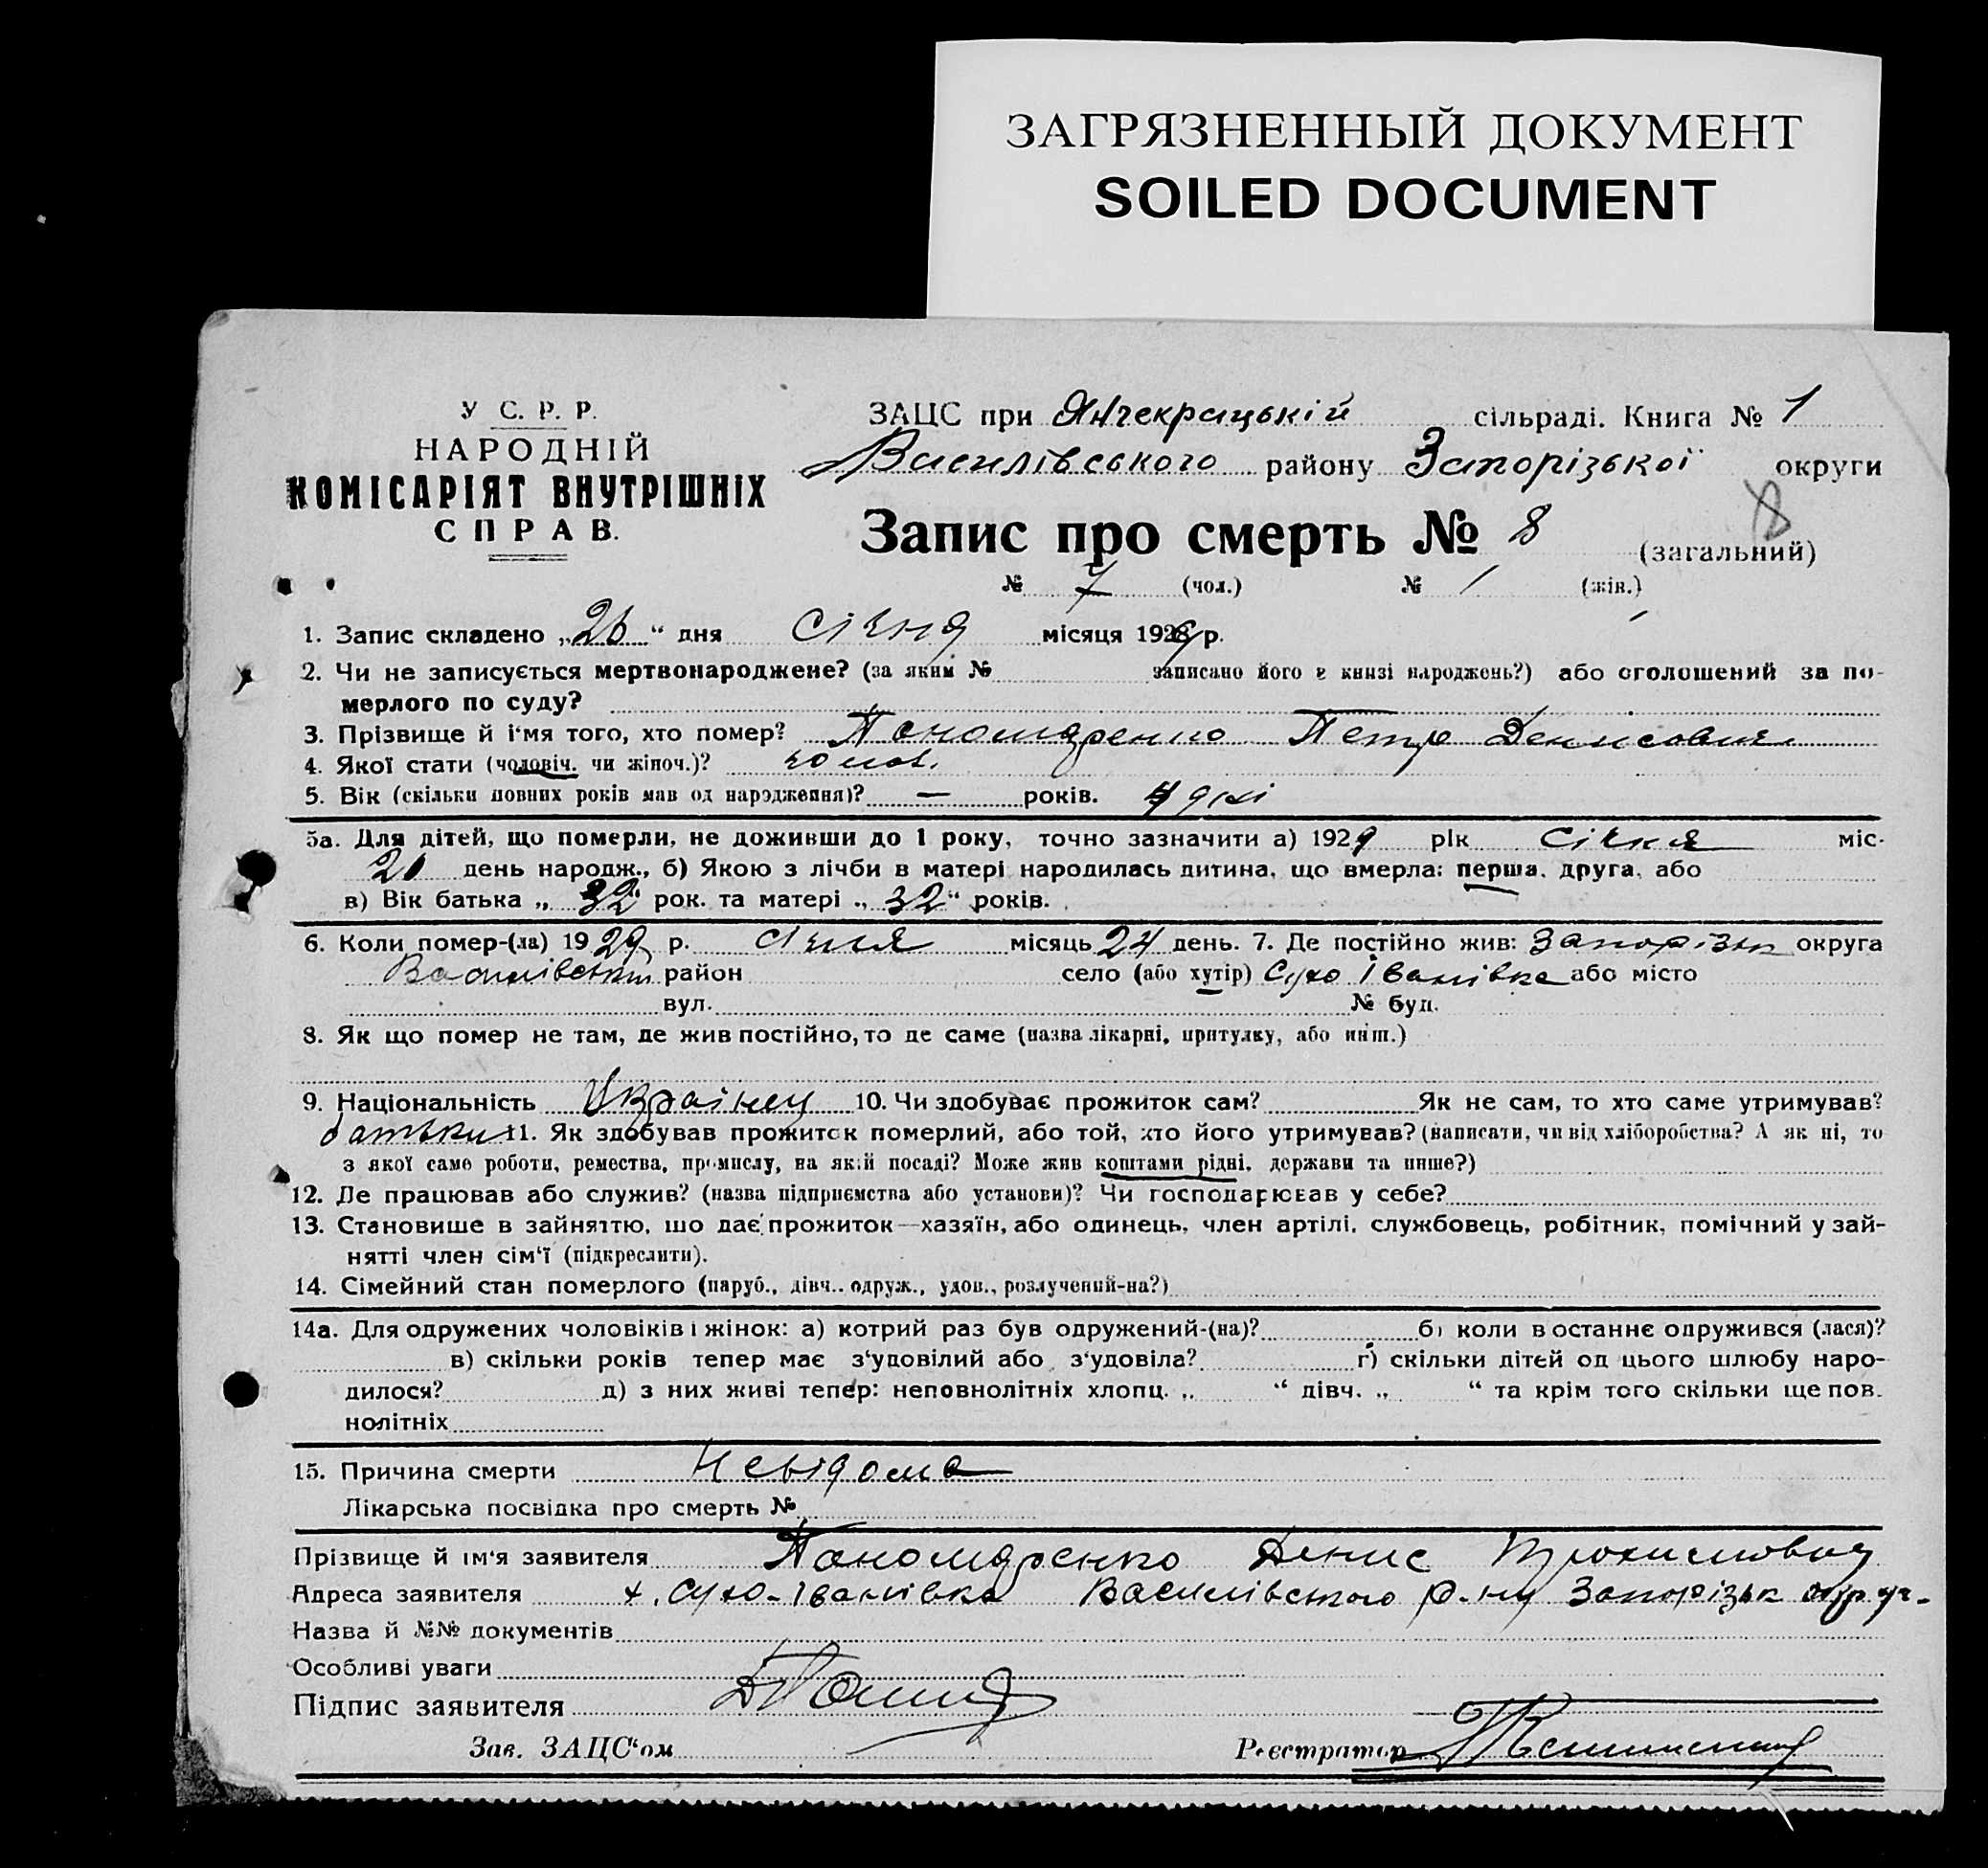 ЗАГРЯЗНЕННЫЙ ДОКУМЕНТ
SOILED DOCUMENT
У С. Р. Р.
НАРОДНІЙ
КОМІСАРІЯТ ВНУТРІШНІХ
СПРАВ.
ЗАЦС при Янчекрацькій сільраді. Книга № 1
Василівського району Запорізької округи
8
Запис про смерть № 8 (загальний)
№ 7 (чол.) № / (жін.)
1. Запис складено „26“ дня січня місяця 1929 р.
2. Чи не записується мертвонароджене? (за яким № записано його в книзі народжень?) або оголошений за по-
мерлого по суду?
3. Прізвище й ім'я того, хто помер? Пономаренко Петро Денисович
4. Якої стати (чоловіч. чи жіноч.)? чолов.
5. Вік (скільки повних років мав од народження)? — років. 4 дні
5а. Для дітей, що померли, не доживши до 1 року, точно зазначити а) 1929 рік січня міс.
20 день народж., б) Якою з лічби в матері народилась дитина, що вмерла: перша, друга, або
в) Вік батька „32“ рок. та матері „32“ років.
6. Коли помер-(ла) 1929 р. січня місяць 24 день. 7. Де постійно жив: Запорізьк округа
Василівський район село (або хутір) Сухо Іванівка або місто
вул. № буд.
8. Як що помер не там, де жив постійно, то де саме (назва лікарні, притулку, або инш.)
9. Національність Українец 10. Чи здобуває прожиток сам? Як не сам, то хто саме утримував?
батьки 11. Як здобував прожиток померлий, або той, хто його утримував? (написати, чи від хліборобства? А як ні, то
з якої саме роботи, ремества, промислу, на якій посаді? Може жив коштами рідні, держави та инше?)
12. Де працював або служив? (назва підприємства або установи)? Чи господарював у себе?
13. Становище в зайняттю, що дає прожиток—хазяїн, або одинець, член артілі, службовець, робітник, помічний у зай-
нятті член сім'ї (підкреслити).
14. Сімейний стан померлого (паруб., дівч.. одруж., удов., розлучений-на?)
14а. Для одружених чоловіків і жінок: а) котрий раз був одружений-(на)? б) коли востаннє одружився (лася)?
в) скільки років тепер має з'удовілий або з'удовіла? г) скільки дітей од цього шлюбу наро-
дилося? д) з них живі тепер: неповнолітніх хлопц. „ “ дівч. „ “ та крім того скільки ще пов.
нолітніх
15. Причина смерти Невідома
Лікарська посвідка про смерть №
Прізвище й ім'я заявителя Пономаренко Денис
Адреса заявителя х. Сухо-Іванівка Василівського р-ну Запорізьк округ.
Назва й №№ документів
Особливі уваги
Підпис заявителя
Зав. ЗАЦС'ом Реєстратор